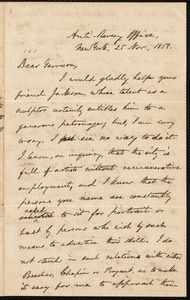 Anti-Slavery Office,
New York, 25 Nov., 1858.
Dear Garrison,
I would gladly help your
friend Jackson, whose talent as a
sculptor certainly entitles him to a
generous patronage; but I am sorry
to say, I see no way to do it.
I learn, on inquiry, that the city is
full of artists without remunerative
employment, and I know that the
persons you name are constantly
solicited to sit for portrait or
bust by persons who wish by such
means to advertise their skill. I do
not stand in such relations with either
Beecher, Chapin or Bryant, as to make
it easy for me to approach them